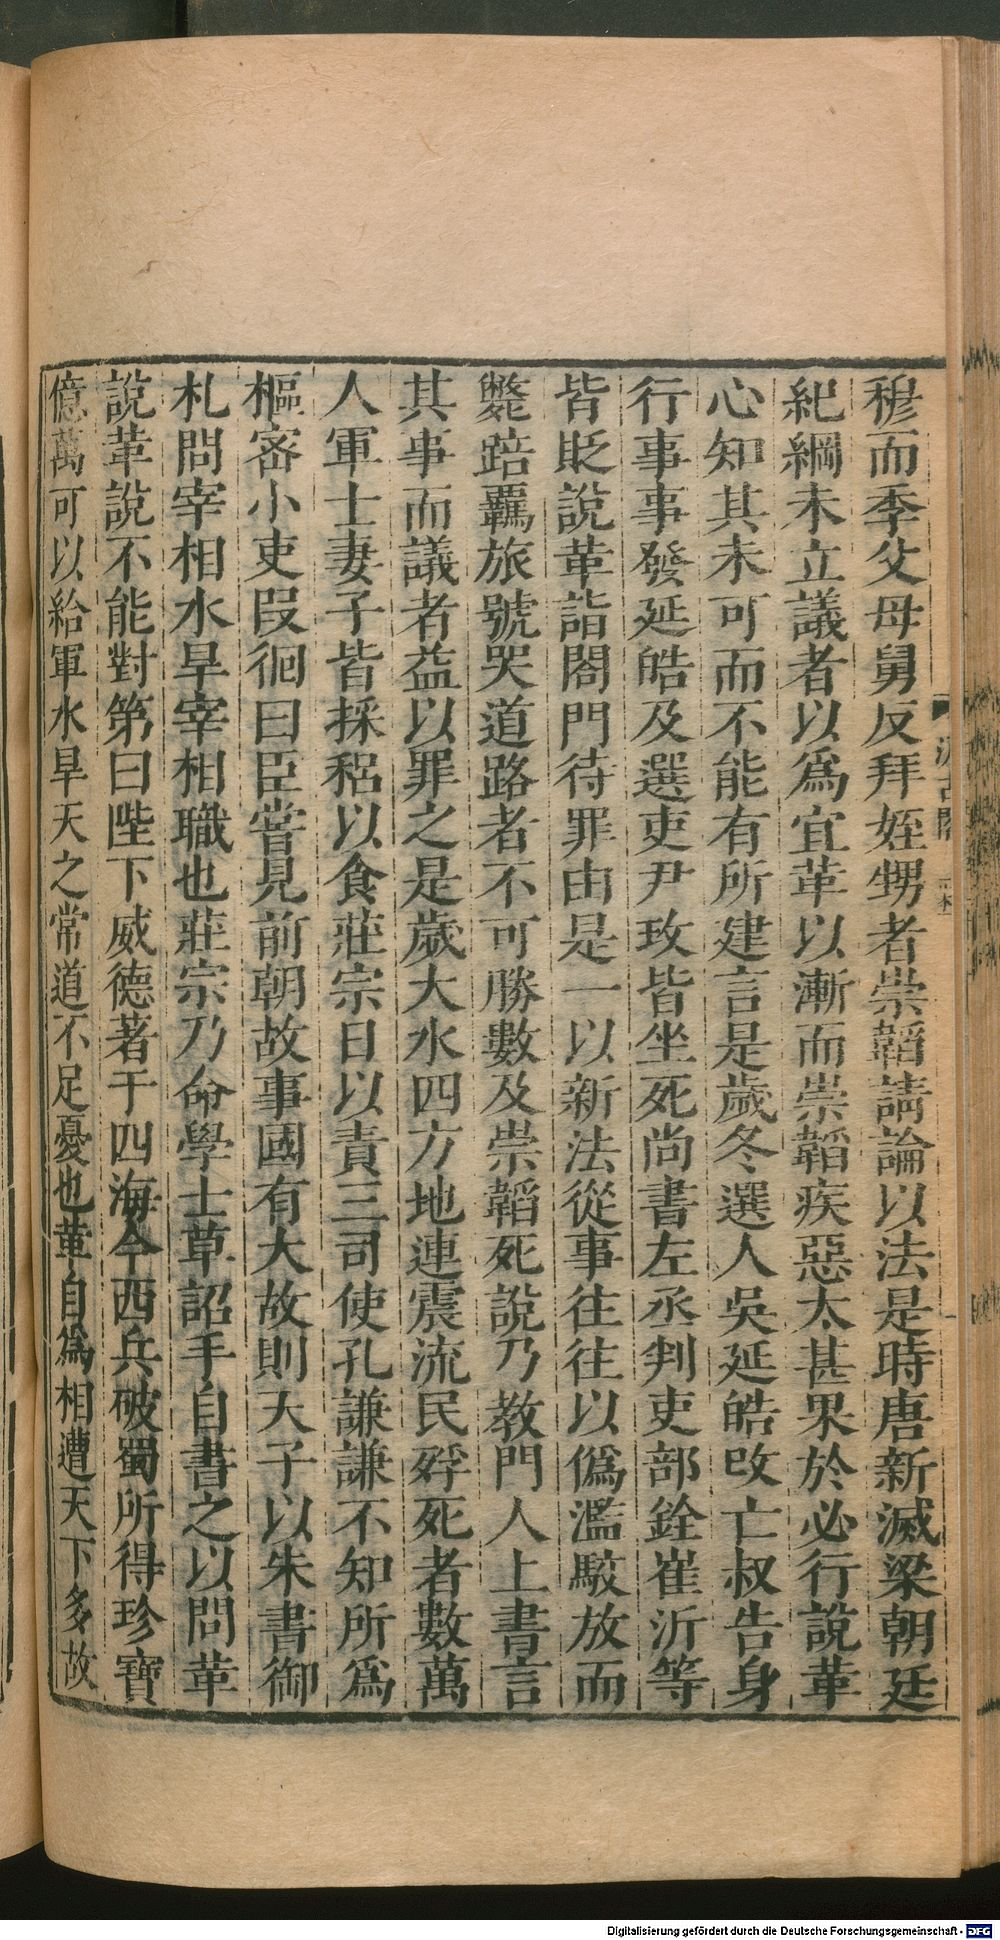 穆而季父母舅反拜姪甥者崇韜請論以法是時唐新滅梁朝廷
紀綱未立議者以爲宜革以漸而崇韜疾惡太甚果於必行說革
心知其未可而不能有所建言是歲冬選人吳延皓改亡叔告身
行事事發延皓及選吏尹玫皆坐死尚書左丞判吏部銓崔沂等
皆貶說革詣閤門待罪由是一以新法從事往往以僞濫駮放而
斃踣羈旅號哭道路者不可勝數及崇韜死說乃教門人上書言
其事而議者益以罪之是歲大水四方地連震流民殍死者數萬
人軍士妻子皆採稆以食莊宗日以責三司使孔謙謙不知所爲
樞密小吏段徊曰臣嘗見前朝故事國有大故則天子以朱書御
札問宰相水旱宰相職也莊宗乃命學士草詔手自書之以問革
說革說不能對第曰陛下威德著于四海今西兵破蜀所得珍寶
億萬可以給軍水旱天之常道不足憂也革自爲相遭天下多故
汲古閣
Digitalisierung gefördert durch die Deutsche Forschungsgemeinschaft - DFG